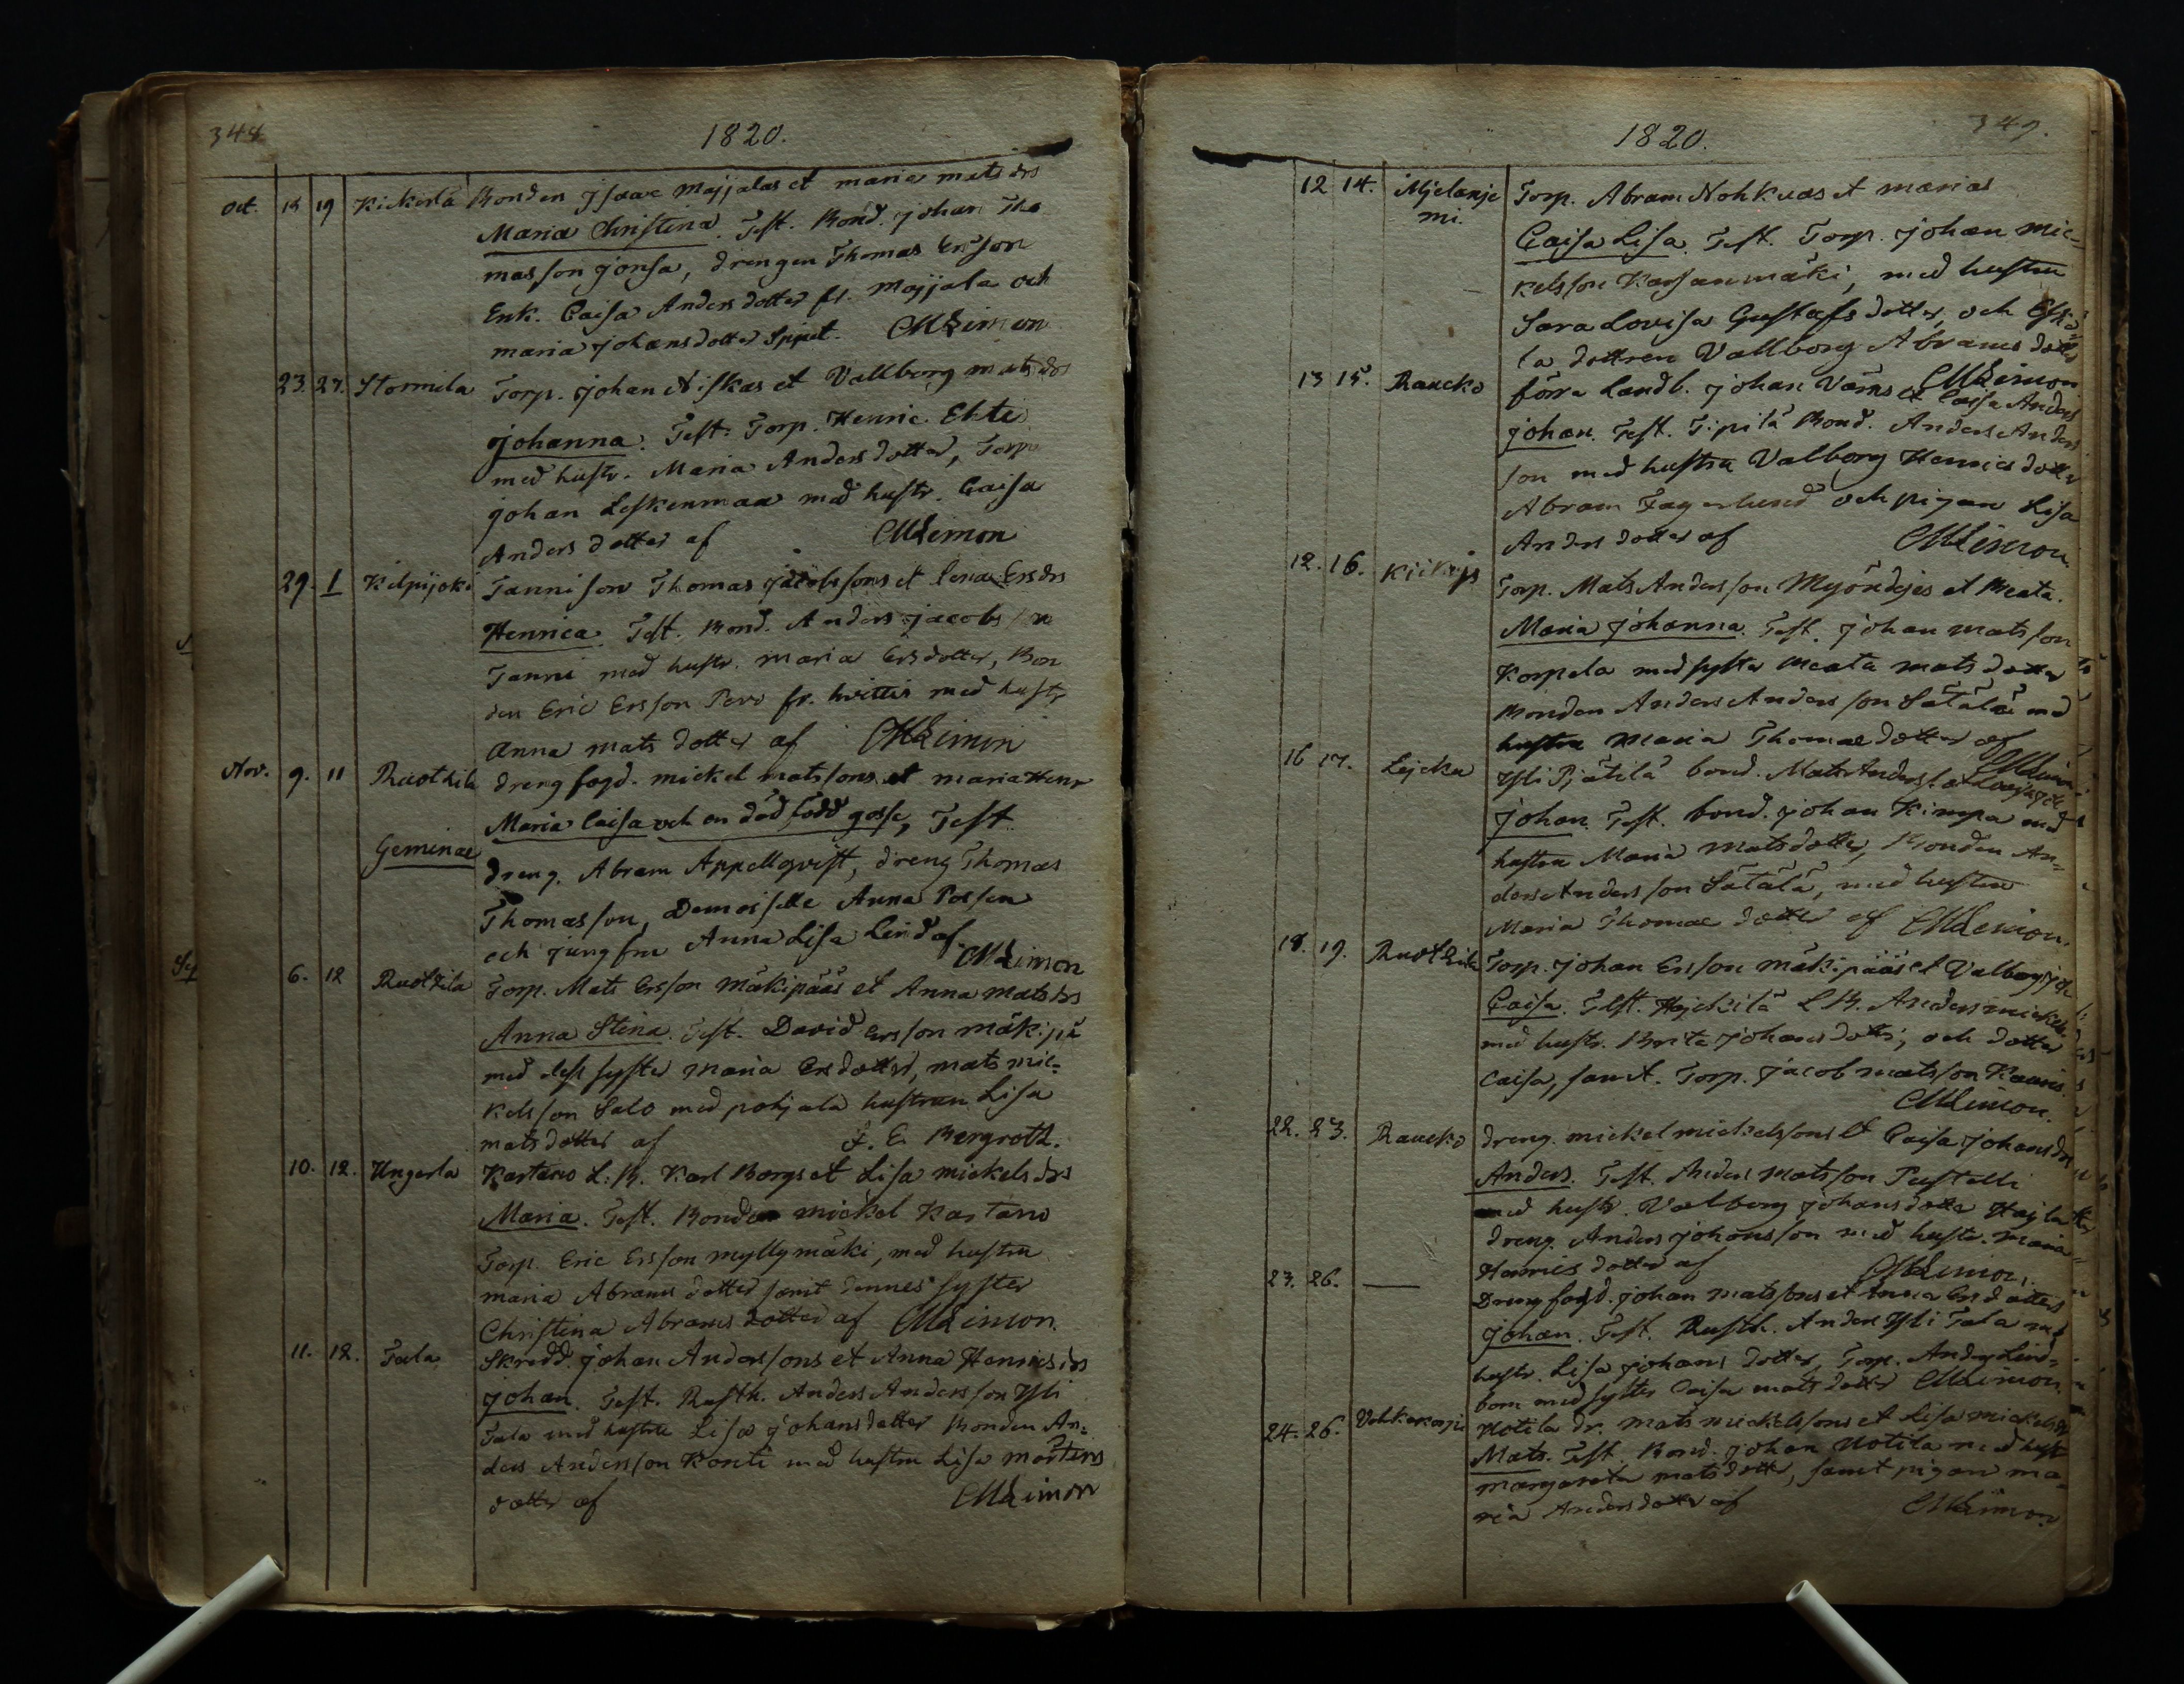 348
1820.
Oct. 18 19 Kickerla Bonden Isaac Majjalas et maria mats drs
Maria Christina. Test. Bond. johan Tho
masson jonsa, drengen Thomas Ersson
Enk. Caisa Anders dotter fr. Majjala och
maria johansdotter Sppit. CMLimon
23. 27. Stormila Torp. johan Niskas et Vallborg mats drs
johanna. Test. Torp. Henric Ehti
med hustr. Maria Anders dotter, Torp
johan Leskenmaa med hustr. Caisa
Anders dotter af CMLimon
29. 1 Kilpijoki Tannison Thomas jacobssons et lena Ersdrs
Henrica. Test. Bond. Anders jacobsson
Tanni med hustr. maria Ersdotter, Bon
den Eric Ersson Pero fr. hvittis med hustr
Anna mats dotter af CMLimon
Nov. 9. 11 Ruothila dreng fogd. mickel matssons et maria Henr
Maria Caisa och en död född gosse, Test
Geminae dreng. Abram Appellqvist, dreng Thomas
Thomasson, Demoiselle Anna Possen
och jungfru Anna Lisa Lind af CMLimon
6. 12 Ruothila Torp. Mats Ersson mäkipääs et Anna mats drs
Anna Stina. Test. David Ersson mäkipä
med dess syster maria Ersdotter, mats mic-
kelsson Salo med pohjala hustrun Lisa
matsdotter af F. E. Bergroth.
10. 12. Ungerla Kartano L: B. Karl Borgs et Lisa mickels drs
Maria. Test. Bonden mickel Kartano
Torp. Eric Ersson myllymäki, med hustru
maria Abrams dotter samt dennes syster
Christina Abrams dotter af CMLimon.
11. 12. Tala Skredd. johan Anderssons et Anna Henrics drs
johan. Test. Rusth. Anders Andersson Yli
Tala med hustru Lisa johansdotter Bonden An-
ders Andersson Konti med hustru Lisa mårtens
dotter af CMLimon
349.
1820.
12 14. Mjelanje Torp. Abram Nohkuas et marias
mi. Caisa Lisa. Test. Torp. johan mic-
kelsson Karsanmäki, med hustru
Sara Lovisa Gustafs dotter, och
la dottren Vallborg Abrams dotter
CMLimon
13 15. Raucko förra Landb. johan Väms et Caisa Anders
johan. Test. Tipilä Bond. Anders Anders
son med hustru Valborg Henrics dotter
Abram Fagerlund och pigan Lisa
Anders dotter af CMLimon.
12. 16. Torp. Mats Andersson Myöndejes et Beata.
Maria johanna. Test. johan matsson
Korpela med syster Beata mats dotter
Bonden Anders Andersson Sätälä med
hustru Maria Thomae dotter af CMLimon
16 17. Lejcku Yli Pjätilä bond. Mats
johan. Test. bond. johan Kimpa med
hustru Maria matsdotter, Bonden An-
ders Andersson Sätälä, med hustru
Maria Thomae dotter af CMLimon.
18. 19. Ruothila Torp. johan Ersson mäkipääs et Valborg
Caisa. Test. Hejckilä L B. Anders mickels
med hustr. Brita johansdotter, och dotter
Caisa, samt. Torp. jacob matsson Kauris
CMLimon.
22. 23. Raucko dreng. mickel mickelssons et Caisa johansdr
Anders. Test. Anders Matsson Pustelli
med hustr. Valborg johansdotter
dreng. Anders johansson med hustr. maria
Henrics dotter af CMLimon.
23. 26. — Dreng fogd. johan matssons et Anna Ersdotter
johan. Test. Rusth. Anders Yli Tala med
hustr. Lisa johans dotter, Torp. Anders Lind-
bom med syster Caisa mats dotter CMLimon.
24. 26. Uotila dr. mats mickelssons et Lisa mickels
Mats. Test. Bond. johan Uotila med hustr
margareta matsdotter, samt pigan ma-
ria Andersdotter af CMLimon